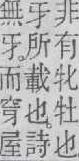 非有牝牡也
牙所載也詩
無牙而穿屋